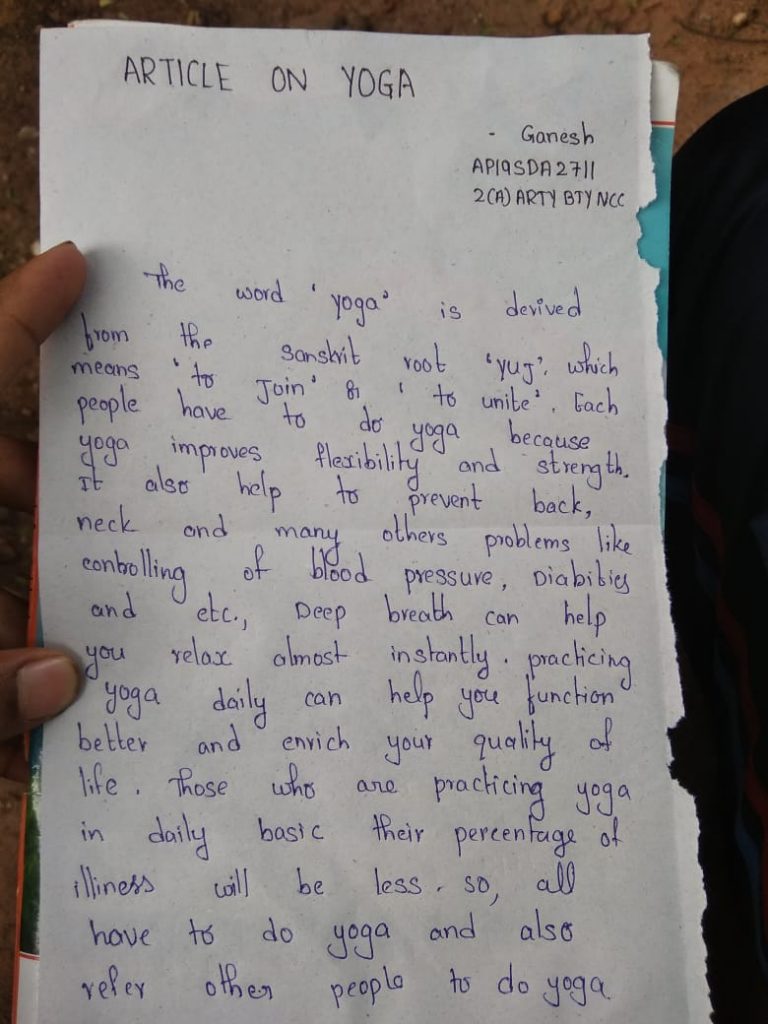 ARTICLE ON YOGA
- Ganesh
AP19SDA2711
2(A) ARTY BTY NCC
The word 'yoga' is derived
from the Sanskrit root 'YUJ', which
means 'to Join' or 'to unite'. Each
people have to do yoga because
yoga improves flexibility and strength.
It also help to prevent back,
neck and many others problems like
controlling of blood pressure, Diabities
and etc., Deep breath can help
you relax almost instantly. practicing
yoga daily can help you function
better and enrich your quality of
life. Those who are practicing yoga
in daily basic their percentage of
illiness will be less. so, all
have to do yoga and also
refer other people to do yoga